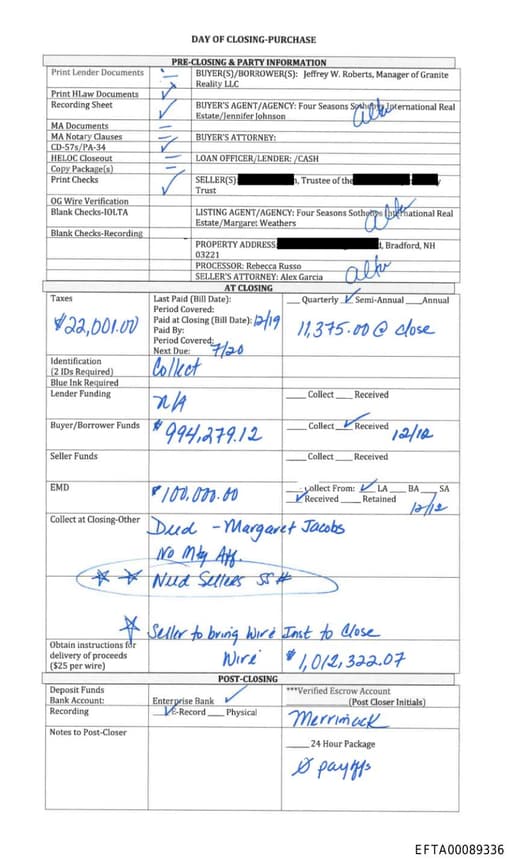 DAY OF CLOSING-PURCHASE
PRE-CLOSING & PARTY INFORMATION
Print Lender Documents
BUYER(S)/BORROWER(S): Jeffrey W. Roberts, Manager of Granite
Reality LLC
Print HLaw Documents
Recording Sheet
BUYER'S AGENT/AGENCY: Four Seasons Sotheby's International Real
Estate/Jennifer Johnson
MA Documents
MA Notary Clauses
BUYER'S ATTORNEY:
CD-57s/PA-34
HELOC Closeout
LOAN OFFICER/LENDER: /CASH
Copy Package(s)
Print Checks
SELLER(S) , Trustee of the
Trust
OG Wire Verification
Blank Checks-IOLTA
LISTING AGENT/AGENCY: Four Seasons Sothebys International Real
Estate/Margaret Weathers
Blank Checks-Recording
PROPERTY ADDRESS , Bradford, NH
03221
PROCESSOR: Rebecca Russo
SELLER'S ATTORNEY: Alex Garcia
AT CLOSING
Taxes
$22,001.00
Last Paid (Bill Date):
Period Covered:
Paid at Closing (Bill Date): 12/19
Paid By:
Period Covered:
Next Due: 7/20
___ Quarterly ✓ Semi-Annual ___Annual
11,375.00 @ close
Identification
(2 IDs Required)
Collect
Blue Ink Required
Lender Funding
N/A
___ Collect ___ Received
Buyer/Borrower Funds
$994,279.12
___ Collect ✓ Received
12/12
Seller Funds
___ Collect ___ Received
EMD
$100,000.00
___ Collect From: ✓ LA ___ BA ___ SA
✓ Received ___ Retained
12/12
Collect at Closing-Other
Deed - Margaret Jacobs
No Mtg Aff.
Need Sellers SS#
Seller to bring Wire Inst to Close
Obtain instructions for
delivery of proceeds
($25 per wire)
Wire $1,012,322.07
POST-CLOSING
Deposit Funds
Bank Account:
Enterprise Bank ✓
***Verified Escrow Account
___ (Post Closer Initials)
Recording
✓ E-Record ___ Physical
Merrimack
Notes to Post-Closer
___ 24 Hour Package
Ø payoffs
EFTA00089336